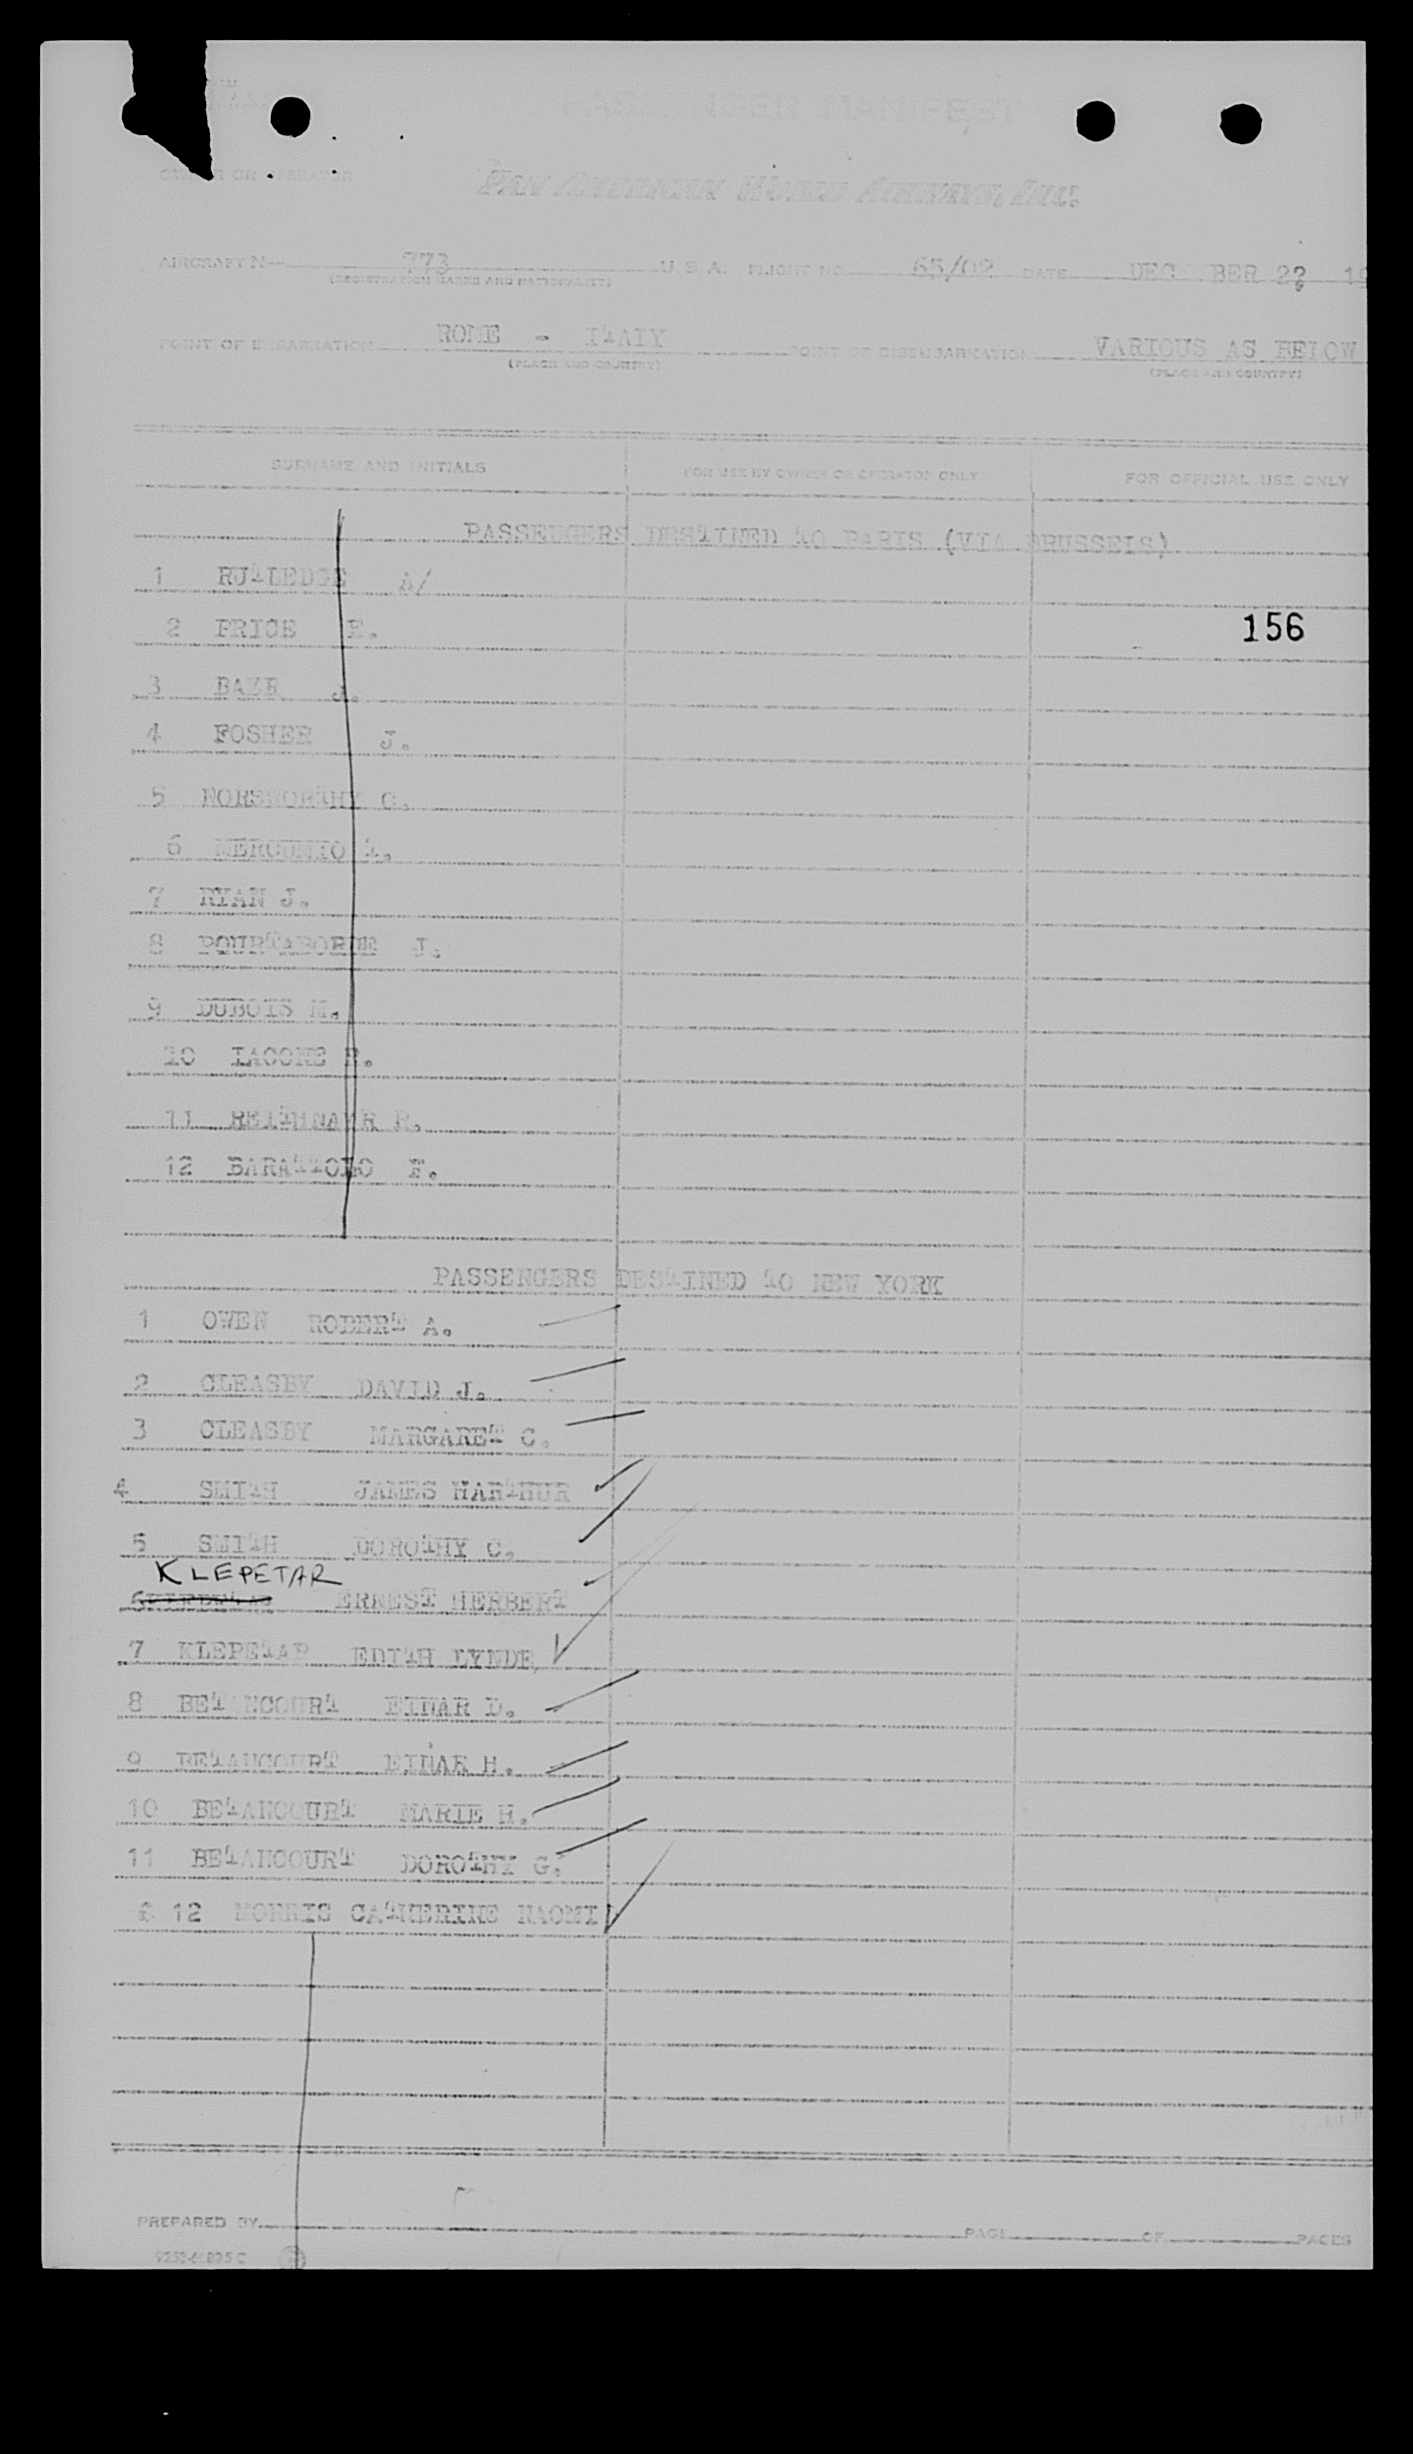 PASSENGER MANIFEST
OWNER OR OPERATOR
PAN AMERICAN WORLD AIRWAYS, INC.
AIRCRAFT N— 773 U.S.A. FLIGHT NO. 65/02 DATE DECEMBER 22 19
(REGISTRATION MARKS AND NATIONALITY)
POINT OF EMBARKATION ROME - ITALY POINT OF DISEMBARKATION VARIOUS AS BELOW
(PLACE AND COUNTRY) (PLACE AND COUNTRY)
SURNAME AND INITIALS FOR USE BY OWNER OR OPERATOR ONLY FOR OFFICIAL USE ONLY
PASSENGERS DESTINED TO PARIS (VIA BRUSSELS)
1 RUTLEDGE A/
2 PRICE 156
3 BAER J.
4 FOSHER J.
5 NORSWORTHY G.
6
7 RYAN J.
8 J.
9 DUBOIS M.
10 IACONE
11
12 BARATTOLO F.
PASSENGERS DESTINED TO NEW YORK
1 OWEN ROBERT A.
2 CLEASBY DAVID J.
3 CLEASBY MARGARET C.
4 SMITH JAMES HARTHUR
5 SMITH DOROTHY C.
KLEPETAR
6 ERNEST HERBERT
7 KLEPETAR EDITH LYNDE
8 BETANCOURT EINAR D.
9 BETANCOURT EINAR H.
10 BETANCOURT MARIE H.
11 BETANCOURT DOROTHY G.
12 MORRIS CATHERINE NAOMI
PREPARED BY PAGE OF PAGES